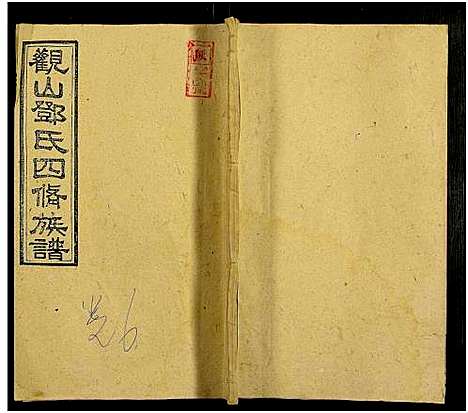 觀山鄧氏四脩族譜
卷6